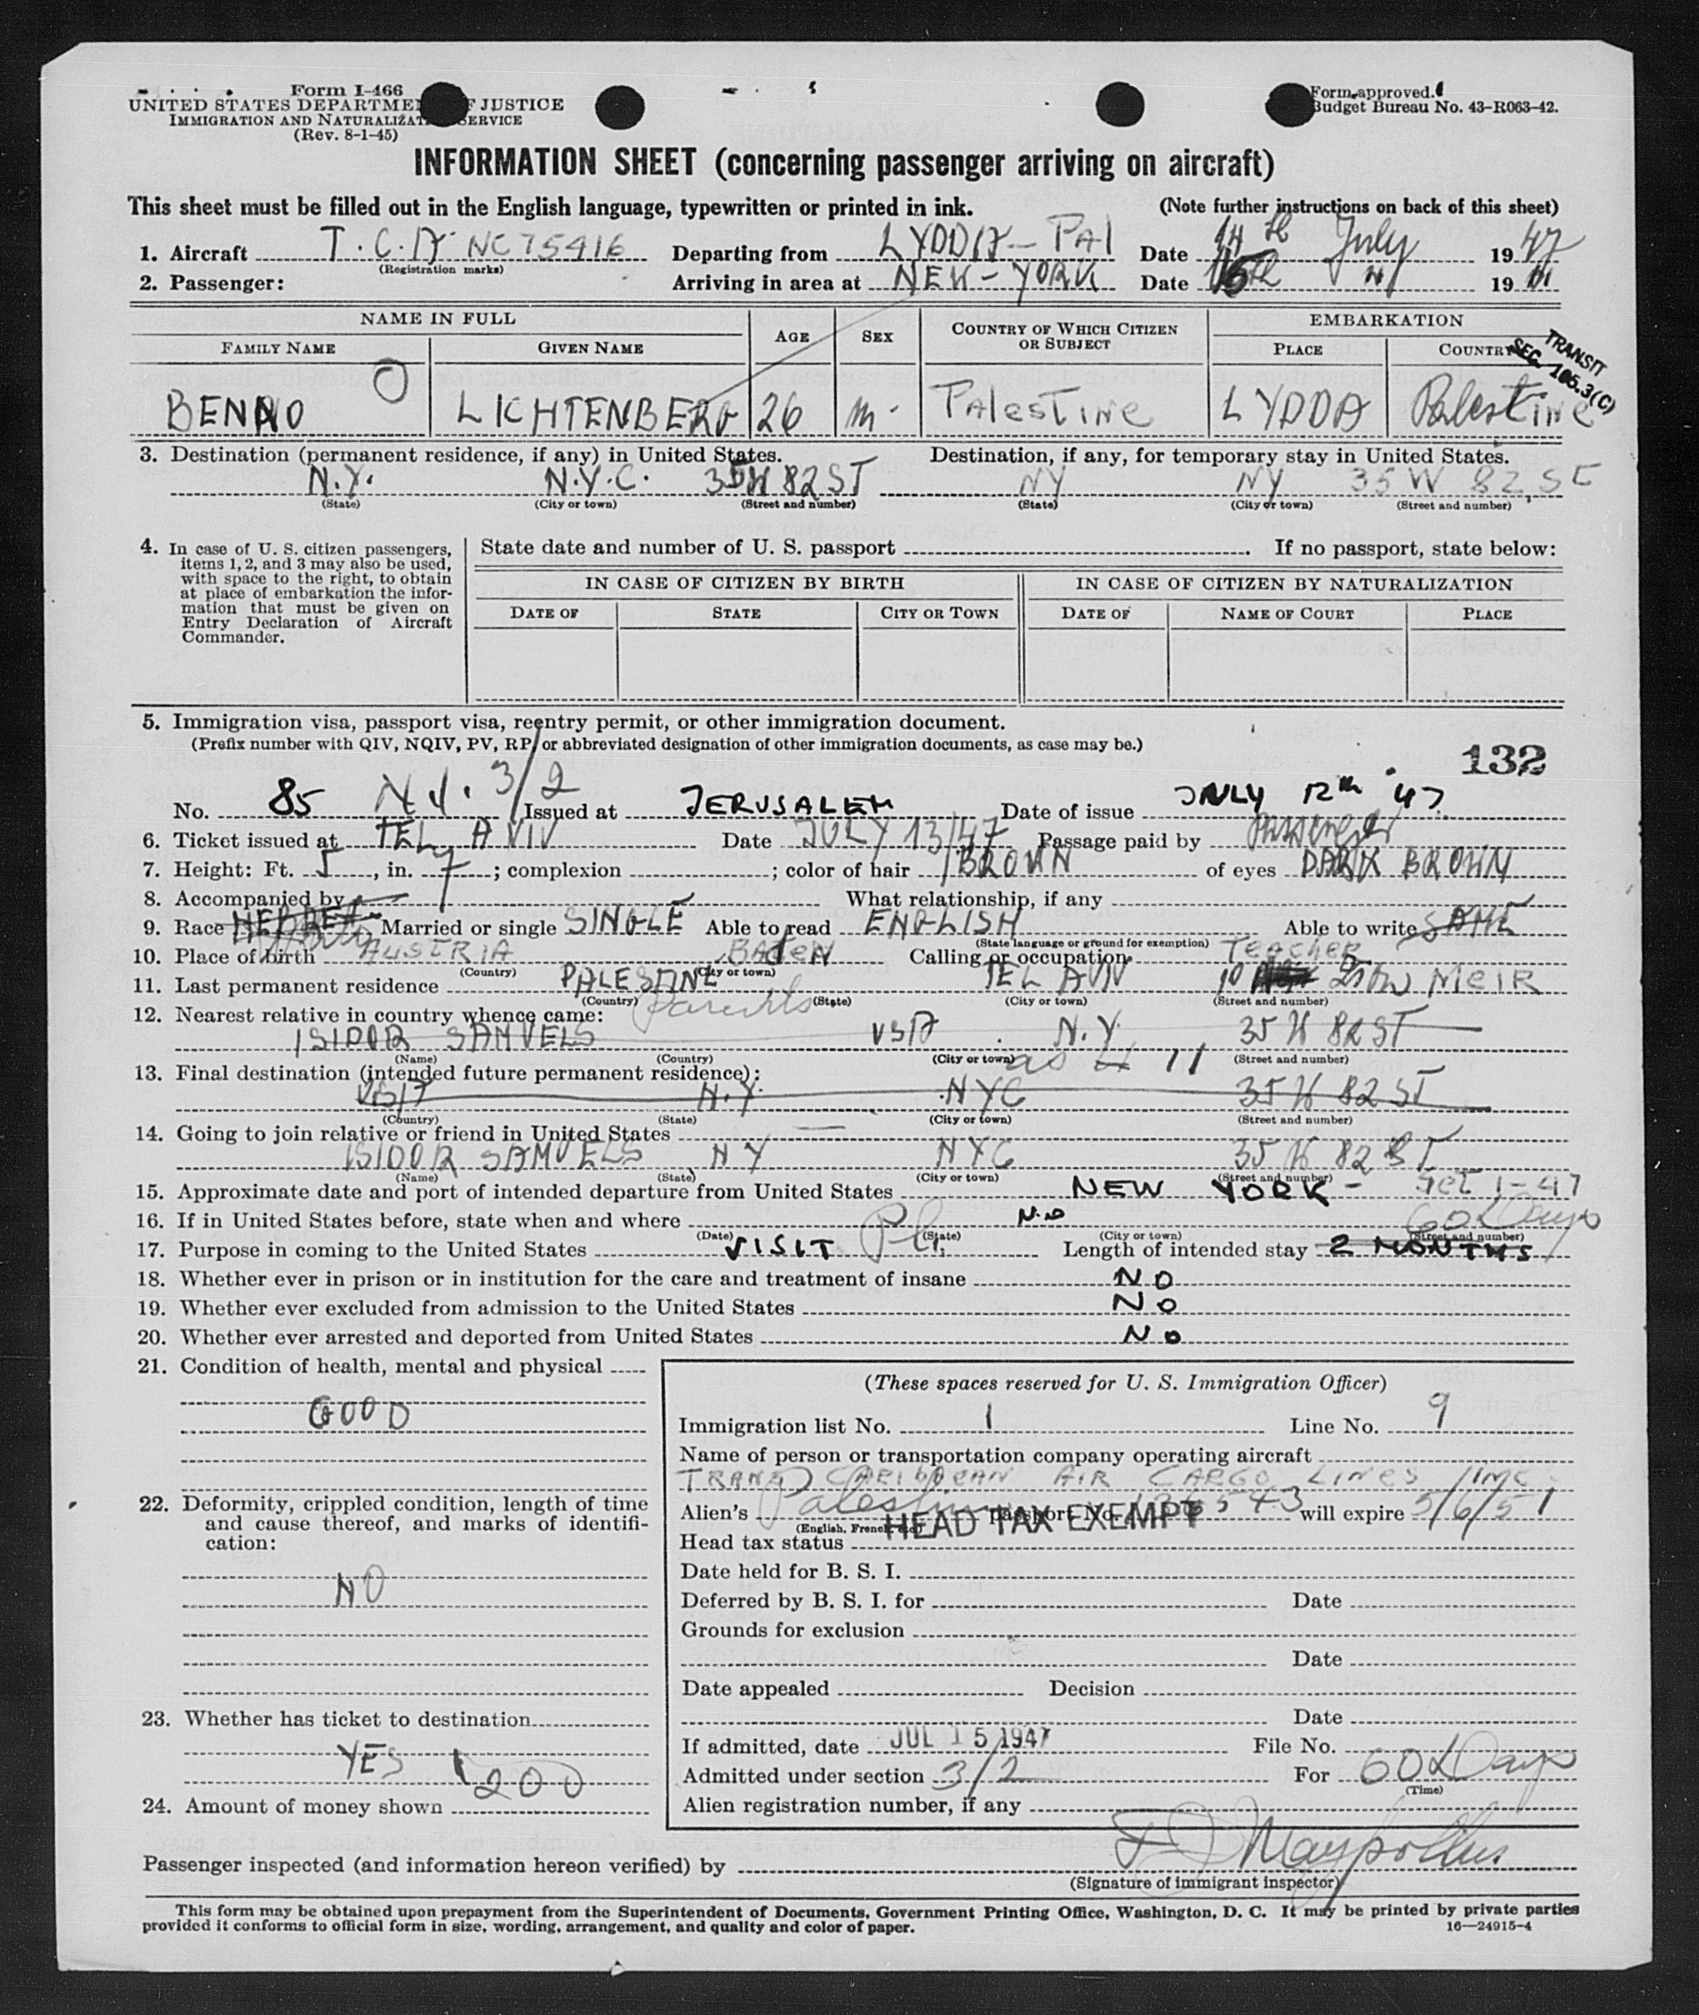 Form I-466
UNITED STATES DEPARTMENT OF JUSTICE
IMMIGRATION AND NATURALIZATION SERVICE
(Rev. 8-1-45)
Form approved.
Budget Bureau No. 43-R063-42.
INFORMATION SHEET (concerning passenger arriving on aircraft)
This sheet must be filled out in the English language, typewritten or printed in ink. (Note further instructions on back of this sheet)
1. Aircraft T.C.A. NC75416 Departing from LYDDA - PAl Date 14th July 1947
(Registration marks)
2. Passenger: Arriving in area at NEW-YORK Date 15th " 19
NAME IN FULL AGE SEX COUNTRY OF WHICH CITIZEN OR SUBJECT EMBARKATION
FAMILY NAME GIVEN NAME PLACE COUNTRY
TRANSIT
SEC. 105.3(C)
BENNO LICHTENBERG 26 M. PAlesTINe LYDDA PalesTINe
3. Destination (permanent residence, if any) in United States. Destination, if any, for temporary stay in United States.
N.Y. N.Y.C. 35 W 82 ST NY NY 35 W 82, St
(State) (City or town) (Street and number) (State) (City or town) (Street and number)
4. In case of U. S. citizen passengers, items 1, 2, and 3 may also be used, with space to the right, to obtain at place of embarkation the information that must be given on Entry Declaration of Aircraft Commander.
State date and number of U. S. passport . If no passport, state below:
IN CASE OF CITIZEN BY BIRTH IN CASE OF CITIZEN BY NATURALIZATION
DATE OF STATE CITY OR TOWN DATE OF NAME OF COURT PLACE
5. Immigration visa, passport visa, reentry permit, or other immigration document.
(Prefix number with QIV, NQIV, PV, RP, or abbreviated designation of other immigration documents, as case may be.)
132
No. 85 3/2 Issued at JERUSALEM Date of issue JULY 12th '47.
6. Ticket issued at TEL AVIV Date JULY 13/47 Passage paid by Passenger
7. Height: Ft. 5, in. 7; complexion ; color of hair BROWN of eyes DARK BROWN
8. Accompanied by — What relationship, if any
9. Race HEBREW Married or single SINGLE Able to read ENGLISH Able to write SAME
(State language or ground for exemption)
10. Place of birth AUSTRIA BADEN Calling or occupation Teacher
(Country) (City or town)
11. Last permanent residence PALESTINE TEL AVIV 10 MEIR
(Country) (State) (City or town) (Street and number)
12. Nearest relative in country whence came: Parents
ISIDOR SAMUELS USA N.Y. 35 W 82 ST
(Name) (Country) (City or town) (Street and number)
as # 11
13. Final destination (intended future permanent residence):
USA N.Y. NYC 35 W 82 ST
(Country) (State) (City or town) (Street and number)
14. Going to join relative or friend in United States —
ISIDOR SAMUELS NY NYC 35 W 82 ST
(Name) (State) (City or town) (Street and number)
15. Approximate date and port of intended departure from United States NEW YORK -
16. If in United States before, state when and where NO 60 Days
(Date) (State) (City or town) (Street and number)
17. Purpose in coming to the United States VISIT Length of intended stay 2 MONTHS
18. Whether ever in prison or in institution for the care and treatment of insane NO
19. Whether ever excluded from admission to the United States NO
20. Whether ever arrested and deported from United States NO
21. Condition of health, mental and physical
GOOD
22. Deformity, crippled condition, length of time and cause thereof, and marks of identification:
NO
23. Whether has ticket to destination
YES
24. Amount of money shown 200
(These spaces reserved for U. S. Immigration Officer)
Immigration list No. 1 Line No. 9
Name of person or transportation company operating aircraft
TRANS CARIBBEAN AIR CARGO LINES INC
Alien's Palestine passport No. will expire 5/6/51
(English, French, etc.)
HEAD TAX EXEMPT
Head tax status
Date held for B. S. I.
Deferred by B. S. I. for Date
Grounds for exclusion
Date
Date appealed Decision
Date
If admitted, date JUL 15 1947 File No.
Admitted under section 3/2 For 60 Days
(Time)
Alien registration number, if any
Passenger inspected (and information hereon verified) by
(Signature of immigrant inspector)
This form may be obtained upon prepayment from the Superintendent of Documents, Government Printing Office, Washington, D. C. It may be printed by private parties
provided it conforms to official form in size, wording, arrangement, and quality and color of paper. 16—24915-4